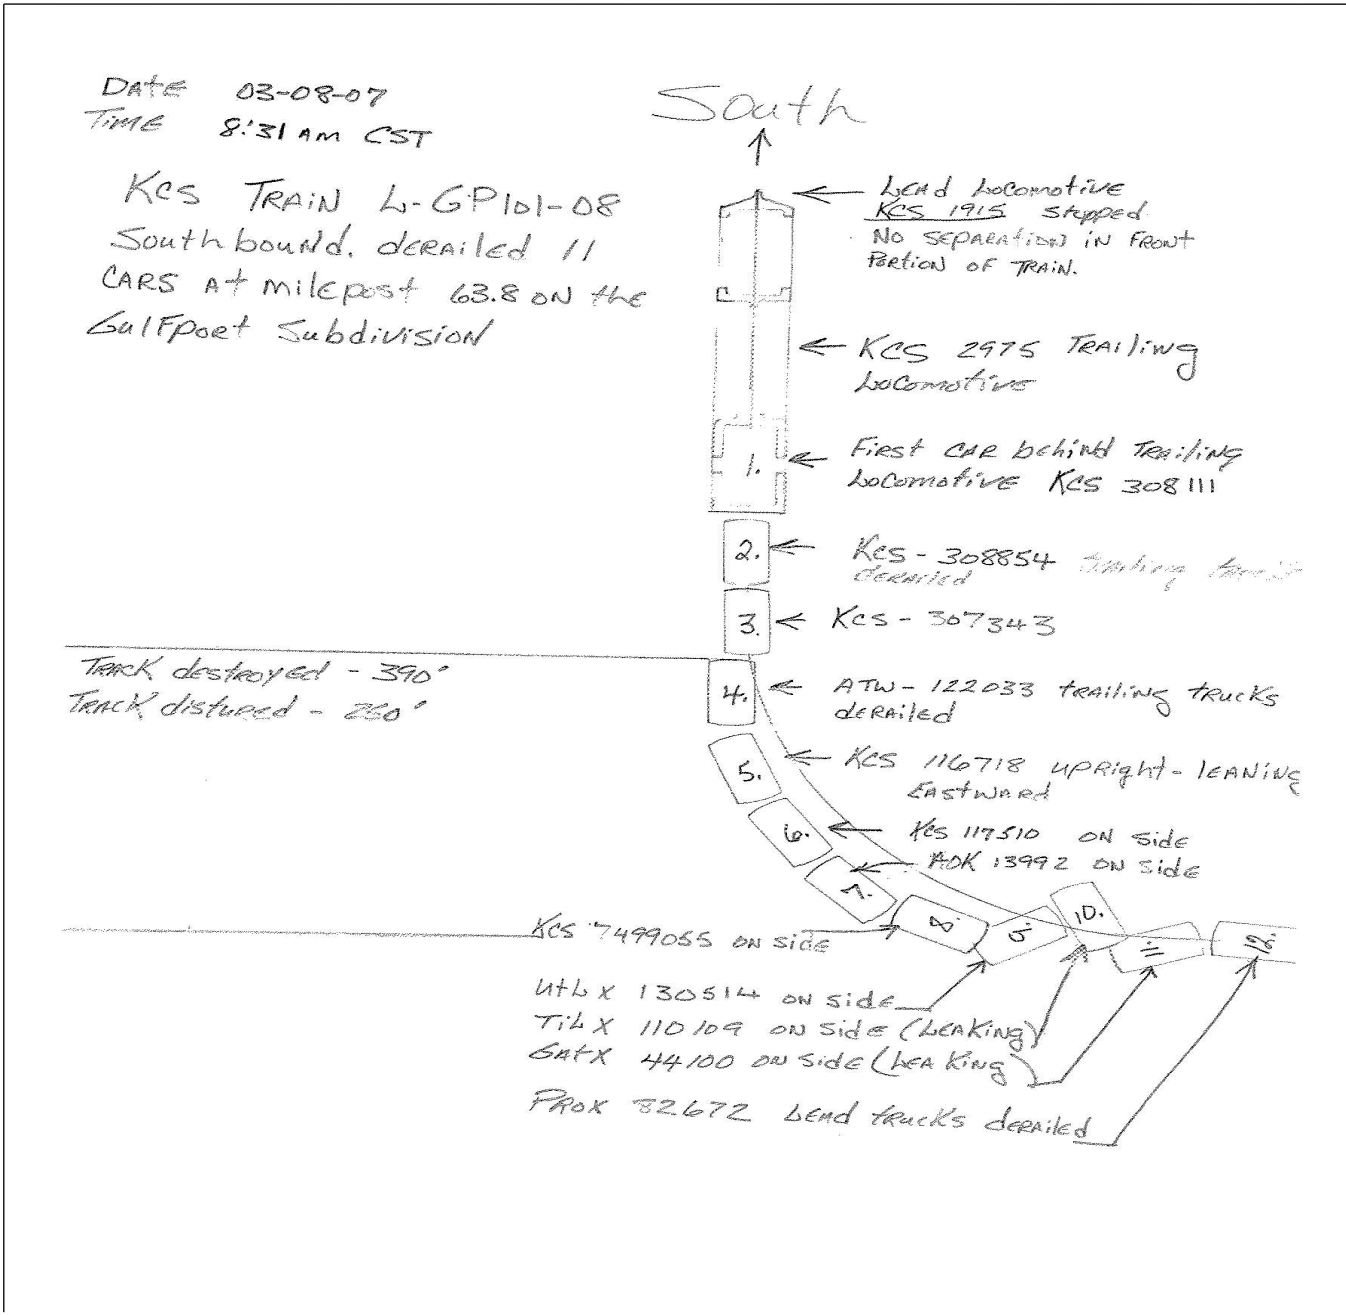 DATE 03-08-07
TIME 8:31 AM CST
South
KCS TRAIN L-GP101-08
Southbound. derailed 11
CARS At milepost 63.8 ON the
GulFport Subdivision
LEAd Locomotive
KCS 1915 stopped
No SEPARATION IN FRONT
PORTION OF TRAIN.
KCS 2975 TRAiling
Locomotive
1.
First CAR behind TRAiling
Locomotive KCS 308111
2.
KCS - 308854 trailing
derailed
3.
KCS - 307343
TRACK destroyed - 390'
TRACK distured - 250'
4.
ATW - 122033 trailing trucks
derailed
5.
KCS 116718 upright - leaning
EASTWARD
6.
KCS 117510 ON side
7.
AOK 13992 ON side
8.
9.
10.
11.
12.
KCS 7499055 ON side
UtLX 130514 ON side
TiLX 110109 ON side (LEAKING)
GAtX 44100 ON side (LEAKing)
PROX 82672 LEAd trucks derailed